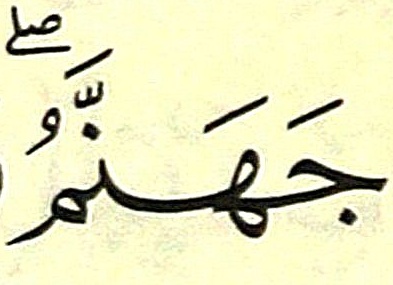 جَهَنَّمُ ۖ